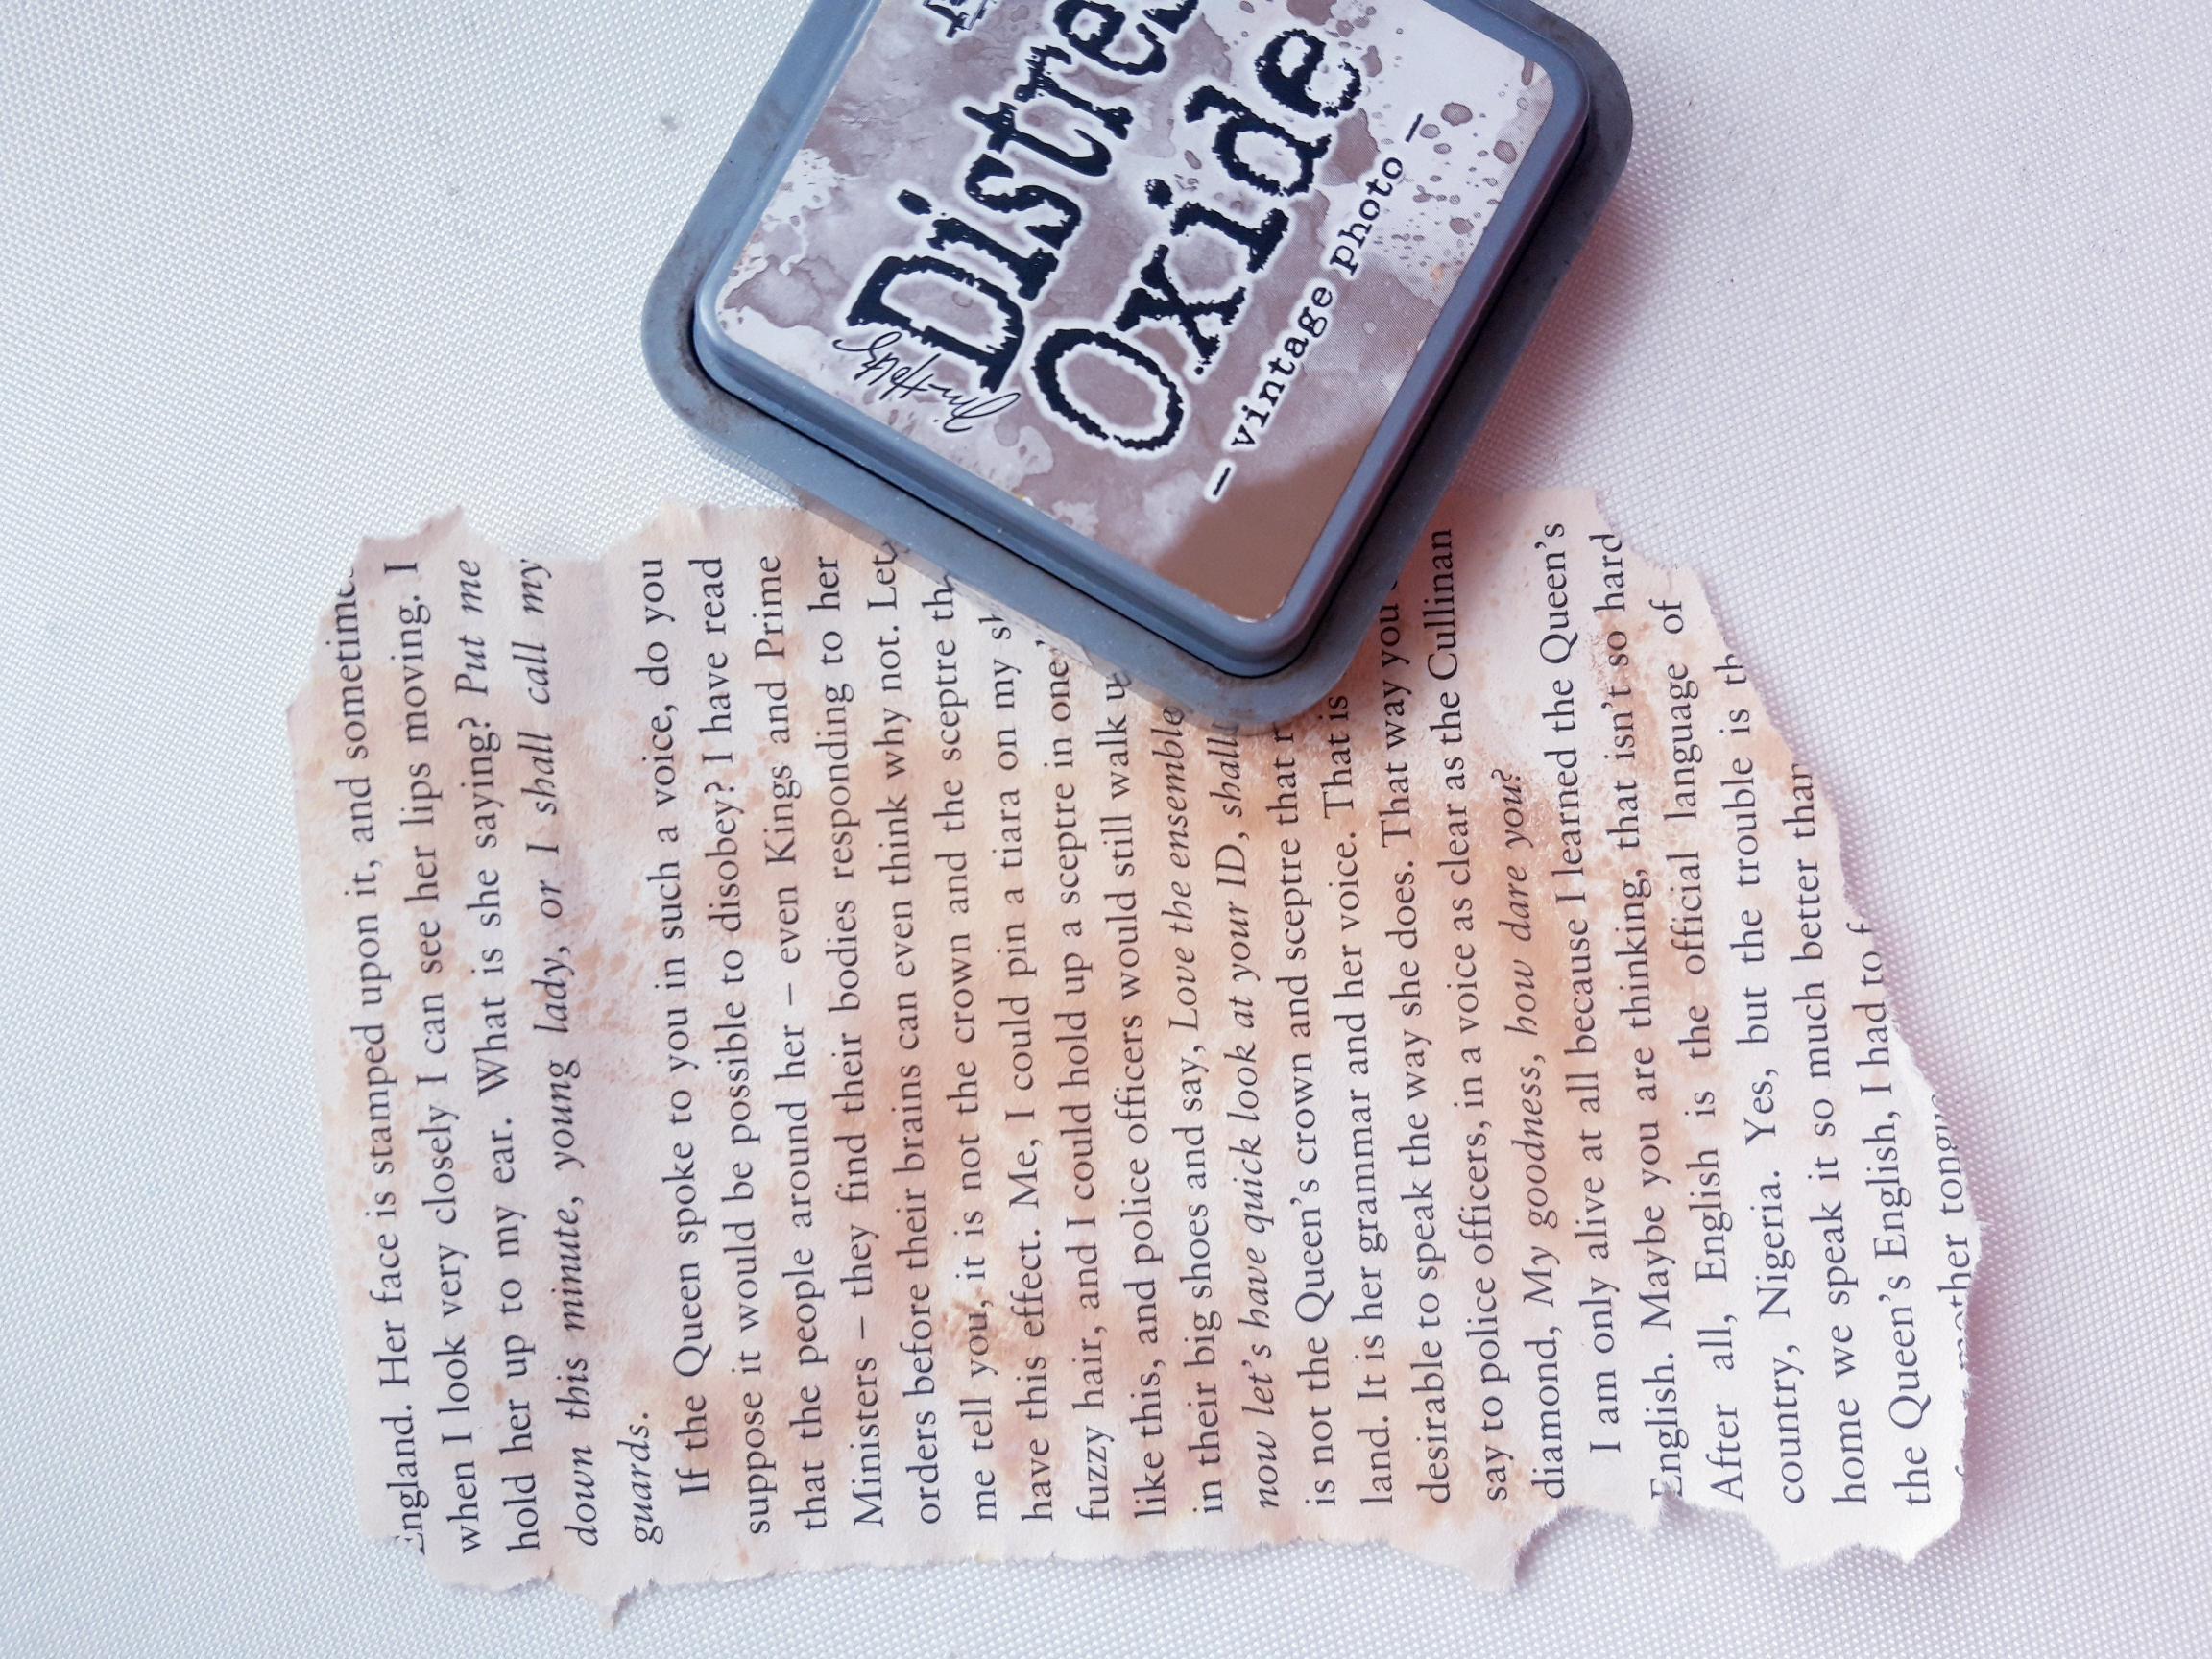 Distre
Oxide
– vintage photo –
England. Her face is stamped upon it, and
when I look very closely I can see her lips moving. I
hold her up to my ear. What is she saying? Put me
down this minute, young lady, or I shall call my
guards.
If the Queen spoke to you in such a voice, do you
suppose it would be possible to disobey? I have read
that the people around her – even Kings and Prime
Ministers – they find their bodies responding to her
orders before their brains can even think why not. Let
me tell you, it is not the crown and the sceptre
have this effect. Me, I could pin a tiara on my
fuzzy hair, and I could hold up a sceptre in
like this, and police officers would still walk
in their big shoes and say, Love the ensemble
now let's have quick look at your ID,
is not the Queen's crown and sceptre that
land. It is her grammar and her voice. That is
desirable to speak the way she does. That way you
say to police officers, in a voice as clear as the Cullinan
diamond, My goodness, how dare you?
I am only alive at all because I learned the Queen's
English. Maybe you are thinking, that isn't so hard
After all, English is the official language of
country, Nigeria. Yes, but the trouble is
home we speak it so much better
the Queen's English, I had to
mother